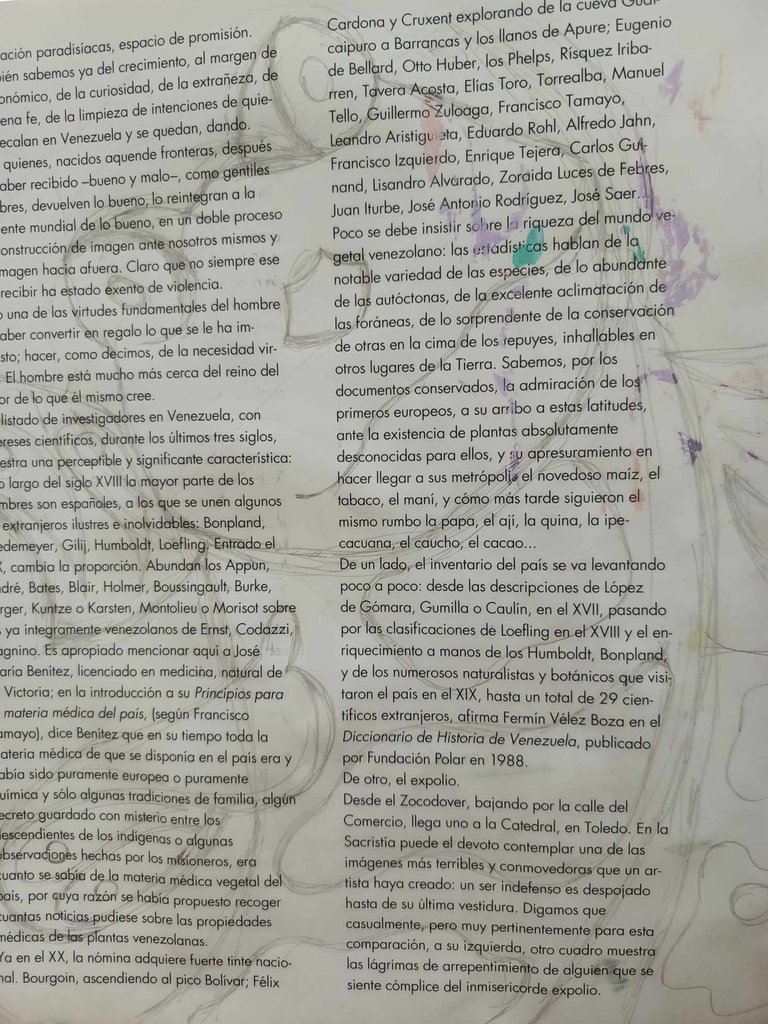 ación paradisíacas, espacio de promisión.
ién sabemos ya del crecimiento, al margen de
onómico, de la curiosidad, de la extrañeza, de
ena fe, de la limpieza de intenciones de quie-
ecalan en Venezuela y se quedan, dando.
quienes, nacidos aquende fronteras, después
aber recibido –bueno y malo–, como gentiles
bres, devuelven lo bueno, lo reintegran a la
ente mundial de lo bueno, en un doble proceso
onstrucción de imagen ante nosotros mismos y
magen hacia afuera. Claro que no siempre ese
recibir ha estado exento de violencia.
o una de las virtudes fundamentales del hombre
aber convertir en regalo lo que se le ha im-
sto; hacer, como decimos, de la necesidad vir-
. El hombre está mucho más cerca del reino del
or de lo que él mismo cree.
listado de investigadores en Venezuela, con
ereses científicos, durante los últimos tres siglos,
estra una perceptible y significante característica:
o largo del siglo XVIII la mayor parte de los
mbres son españoles, a los que se unen algunos
extranjeros ilustres e inolvidables: Bonpland,
edemeyer, Gilij, Humboldt, Loefling. Entrado el
X, cambia la proporción. Abundan los Appun,
dré, Bates, Blair, Holmer, Boussingault, Burke,
rger, Kuntze o Karsten, Montolieu o Morisot sobre
s ya íntegramente venezolanos de Ernst, Codazzi,
agnino. Es apropiado mencionar aquí a José
aría Benítez, licenciado en medicina, natural de
Victoria; en la introducción a su Principios para
materia médica del país, (según Francisco
amayo), dice Benítez que en su tiempo toda la
ateria médica de que se disponía en el país era y
abía sido puramente europea o puramente
uímica y sólo algunas tradiciones de familia, algún
ecreto guardado con misterio entre los
escendientes de los indígenas o algunas
observaciones hechas por los misioneros, era
cuanto se sabía de la materia médica vegetal del
país, por cuya razón se había propuesto recoger
cuantas noticias pudiese sobre las propiedades
médicas de las plantas venezolanas.
Ya en el XX, la nómina adquiere fuerte tinte nacio-
nal. Bourgoin, ascendiendo al pico Bolívar; Félix
Cardona y Cruxent explorando de la cueva Guai-
caipuro a Barrancas y los llanos de Apure; Eugenio
de Bellard, Otto Huber, los Phelps, Rísquez Iriba-
rren, Tavera Acosta, Elías Toro, Torrealba, Manuel
Tello, Guillermo Zuloaga, Francisco Tamayo,
Leandro Aristiguieta, Eduardo Rohl, Alfredo Jahn,
Francisco Izquierdo, Enrique Tejera, Carlos Gui-
nand, Lisandro Alvarado, Zoraida Luces de Febres,
Juan Iturbe, José Antonio Rodríguez, José Saer...
Poco se debe insistir sobre la riqueza del mundo ve-
getal venezolano: las estadísticas hablan de la
notable variedad de las especies, de lo abundante
de las autóctonas, de la excelente aclimatación de
las foráneas, de lo sorprendente de la conservación
de otras en la cima de los repuyes, inhallables en
otros lugares de la Tierra. Sabemos, por los
documentos conservados, la admiración de los
primeros europeos, a su arribo a estas latitudes,
ante la existencia de plantas absolutamente
desconocidas para ellos, y su apresuramiento en
hacer llegar a sus metrópolis el novedoso maíz, el
tabaco, el maní, y cómo más tarde siguieron el
mismo rumbo la papa, el ají, la quina, la ipe-
cacuana, el caucho, el cacao...
De un lado, el inventario del país se va levantando
poco a poco: desde las descripciones de López
de Gómara, Gumilla o Caulín, en el XVII, pasando
por las clasificaciones de Loefling en el XVIII y el en-
riquecimiento a manos de los Humboldt, Bonpland,
y de los numerosos naturalistas y botánicos que visi-
taron el país en el XIX, hasta un total de 29 cien-
tíficos extranjeros, afirma Fermín Vélez Boza en el
Diccionario de Historia de Venezuela, publicado
por Fundación Polar en 1988.
De otro, el expolio.
Desde el Zocodover, bajando por la calle del
Comercio, llega uno a la Catedral, en Toledo. En la
Sacristía puede el devoto contemplar una de las
imágenes más terribles y conmovedoras que un ar-
tista haya creado: un ser indefenso es despojado
hasta de su última vestidura. Digamos que
casualmente, pero muy pertinentemente para esta
comparación, a su izquierda, otro cuadro muestra
las lágrimas de arrepentimiento de alguien que se
siente cómplice del inmisericorde expolio.